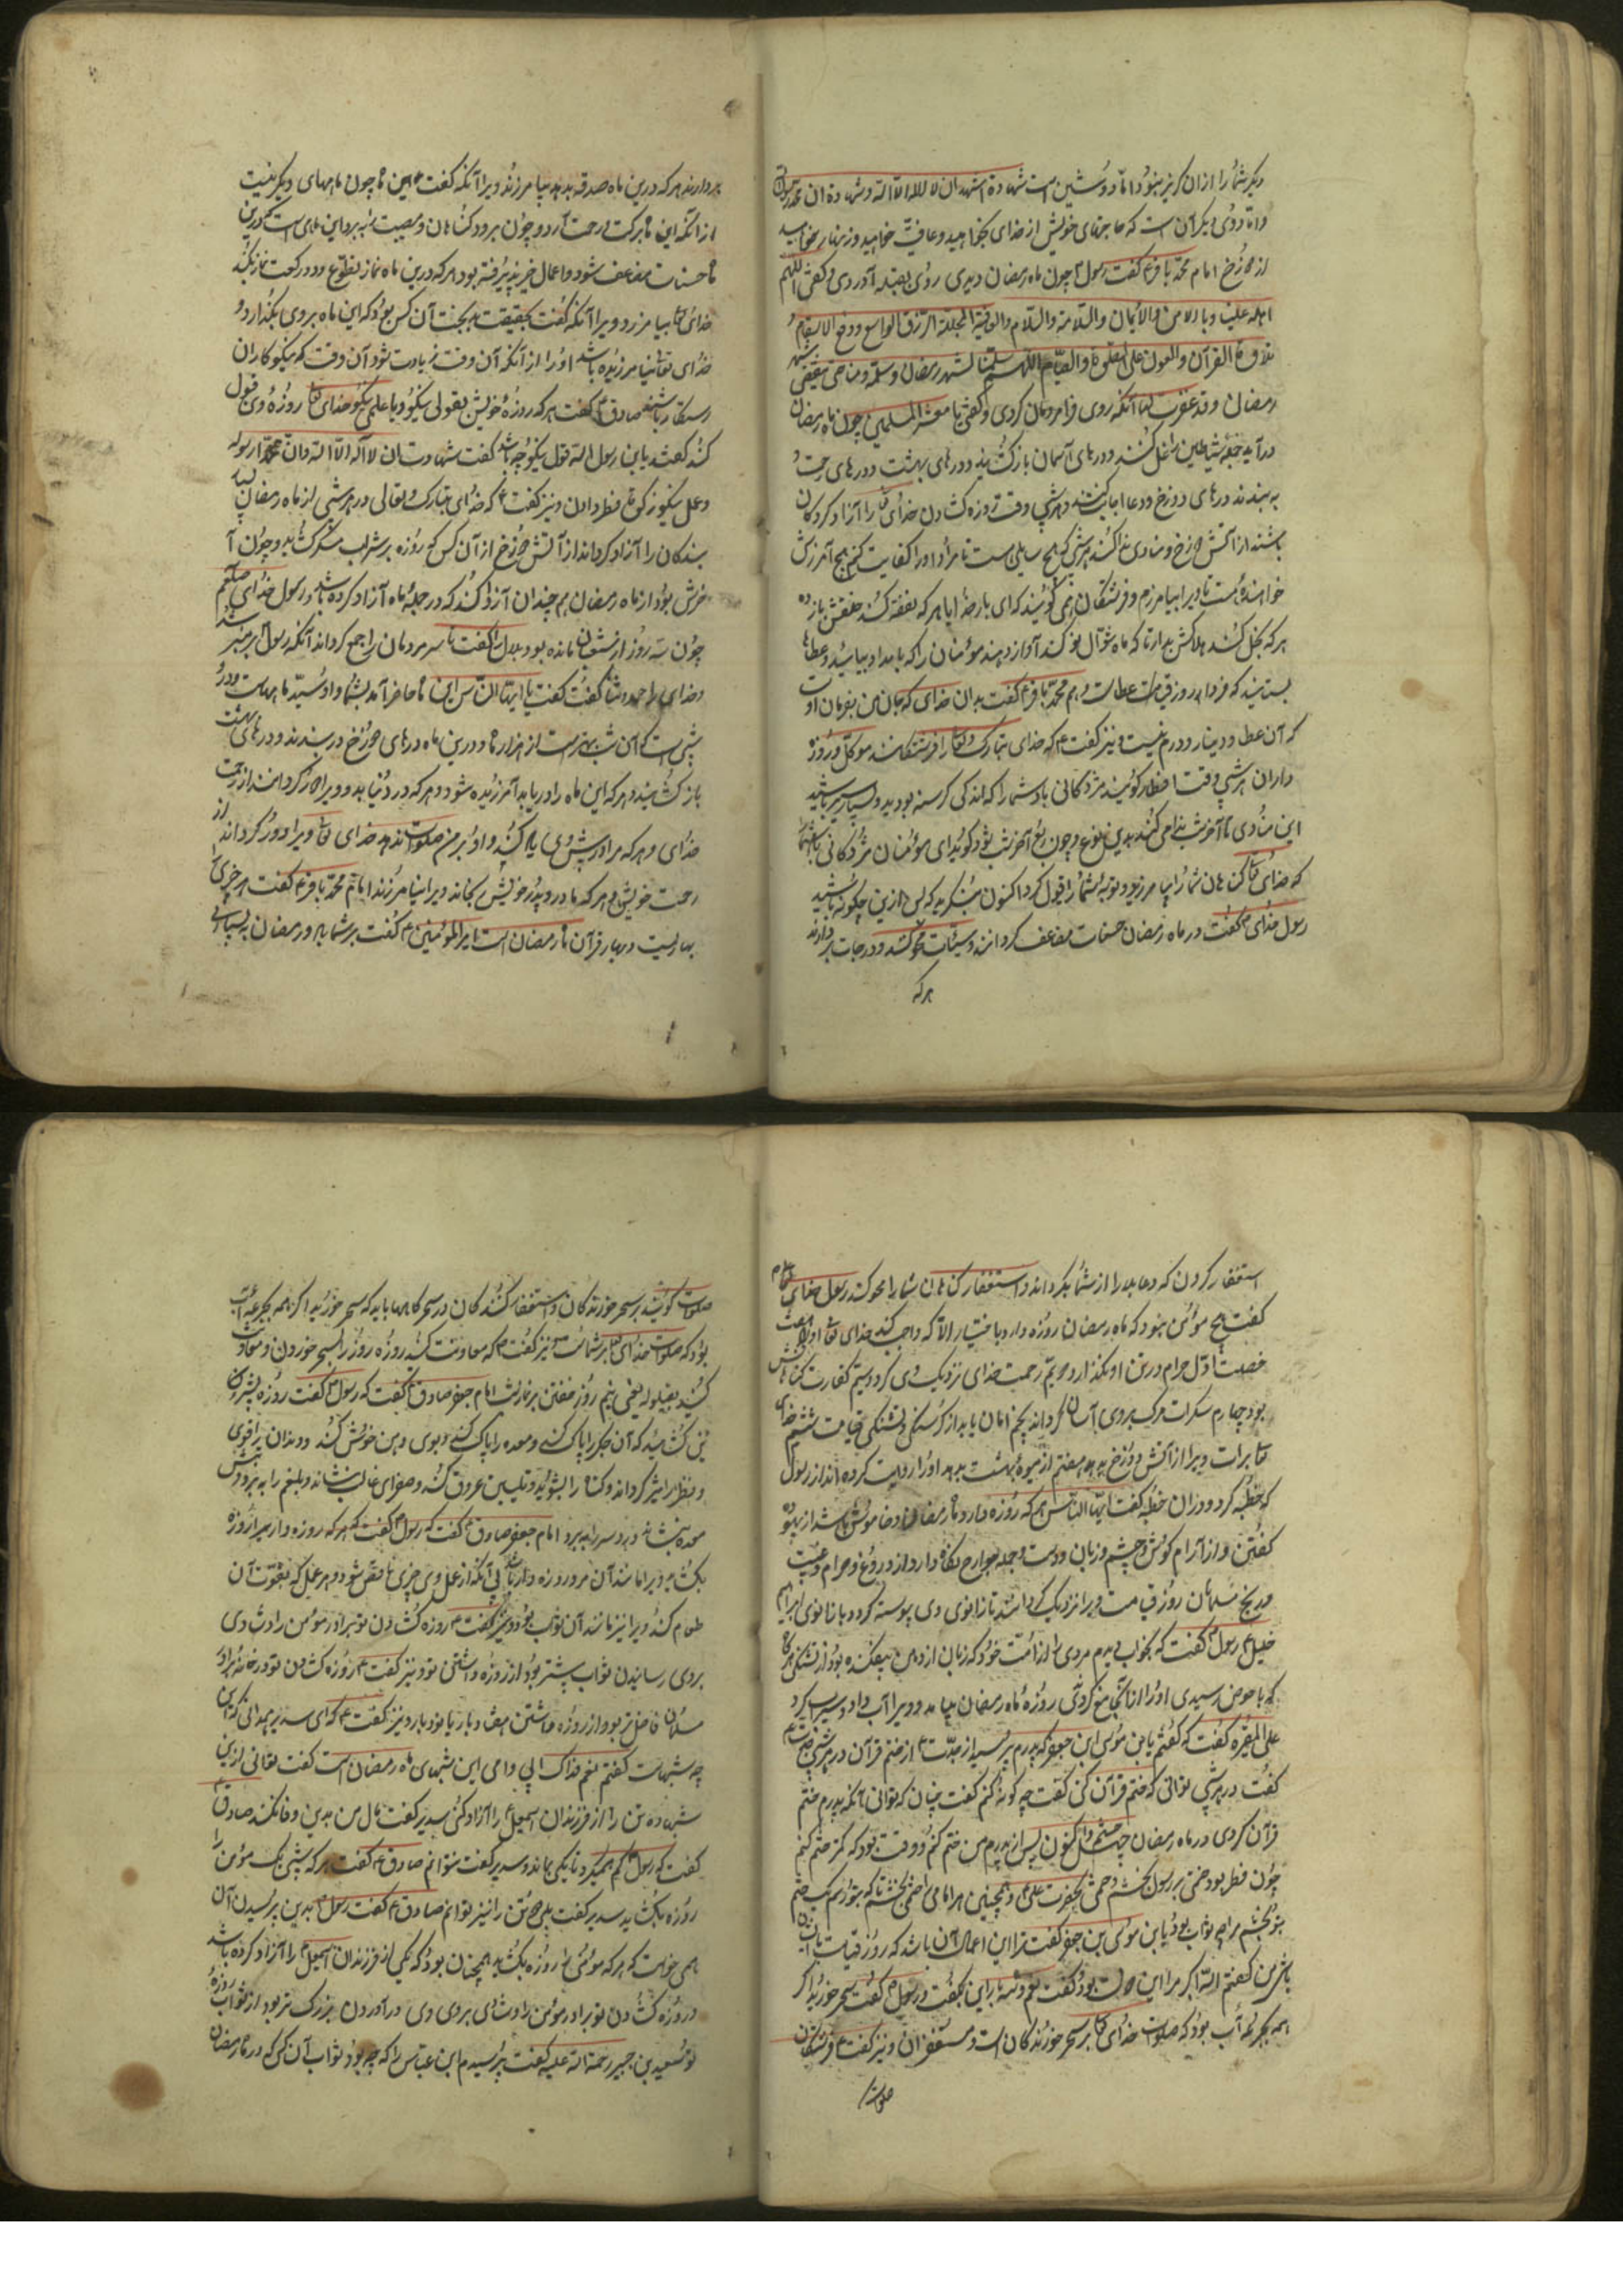 دیگر شما را از آن گریز نبود اما دوئین است شهادة اشهد ان لا اله الا الله و شهادة ان محمد رسول الله
و اما دوی دیگر آن است که حاجتهای خویش از خدای بخواهید و عافیت خواهید و زینهار خواهید
از دوزخ امام محمد باقر ع گفت رسول چون ماه رمضان دیدی روی بقبله آوردی و گفتی اللهم
اهله علینا بالامن و الایمان و السلامة و السلام و العافیة المجللة و الرزق الواسع و دفع الاسقام و
تلاوة القرآن و العون علی الصلوة و الصیام اللهم سلمنا لشهر رمضان و سلمه منا حتی ینقضی شهر
رمضان و قد غفرت لنا آنگه روی فرا مردمان کردی و گفتی یا معشر المسلمین چون ماه رمضان
درآید جمله شیاطین را غل کنند و درهای آسمان بازگشایند و درهای بهشت و درهای رحمت و
به بندند درهای دوزخ و دعا اجابت کنند و هر شبی وقت روزه گشادن خدای تعالی را آزاد کردگان
باشند از آتش دوزخ و منادی ندا کند هر شبی که هیچ سایلی هست تا مراد او را کفایت کنم هیچ آمرزش
خواهنده هست تا ویرا بیامرزم و فرشتگان می گویند که ای بار خدایا هر که نفقه کند خلفش باز ده
هر که بخل کند هلاکش بدار تا که ماه شوال نو کند آواز دهند مؤمنان را که بامداد بیائید و عطاها
بستانید که فردا روز قیامت عطاست و هم محمد باقر ع گفت بدان خدای که جان من بفرمان اوست
که آن عطا و دینار و درم نیست و نیز گفت ع که خدای تبارک و تعالی را فرشتگانند موکل و روزه
داران هر شبی وقت افطار گویند مژدگانی باد شما را که اندکی گرسنه بودید و بسیار سیر باشید
این منادی تا آخر شب ندا می کند بدین نوع و چون آخر شب بود گوید ای مؤمنان مژدگانی باد شما
که خدای تعالی گناهان شما را بیامرزید و توبه شما را قبول کرد اکنون بنگرید که پس ازین چگونه باشید
رسول خدای ص گفت در ماه رمضان حسنات مضاعف گردانند و سیئات محو کنند و درجات بردارند
هر که
بردارند هر که درین ماه صدقه بدهد بیامرزند ویرا آنگه گفت ع این ماه چون ماههای دیگر نیست
از آنگه این ماه برکت و رحمت آرد و چون برود گناهان و مصیبت ببرد این ماهی است که درین
ماه حسنات مضاعف شود و اعمال خیر پذیرفته بود هر که درین ماه نماز تطوع و دو رکعت نماز بکند
خدای تعالی بیامرزد ویرا آنگه گفت بحقیقت بدبخت آن کس بود که این ماه بروی بگذارد و
خدای تعالی نیامرزیده باشد او را از آنگه آن وقت زیادت شود آن وقت که نیکوکاران
رستگار باشند صادق ع گفت هر که روزه خویش بقولی نیکو و یا عملی نیکو خدای تعالی روزه وی قبول
کند گفتند یابن رسول الله قول نیکو چه باشد گفت شهادت ان لا اله الا الله و ان محمدا رسوله
و عمل نیکو زکوة فطر دادن و نیز گفت ع که خدای تبارک و تعالی در هر شبی از ماه رمضان بسیار
بندگان را آزاد گرداند از آتش دوزخ از آن کس که روزه بشراب مسکر گشاید و چون آ
خرش بود از ماه رمضان هم چندان آزاد کند که در جمله ماه آزاد کرده باشد و رسول خدای صلعم
چون سه روز از شعبان مانده بود بلال را گفت تا سر مردمان را جمع گرداند آنگه رسول بر منبر شد
و خدای را حمد و ثنا گفت و گفت یا ایها الناس این ماه حاضر آمد بشما و او سید ماههاست و در و
شبی است که آن شب بهتر است از هزار ماه و درین ماه درهای دوزخ دربندند و درهای بهشت
بازگشایند و هر که این ماه را دریابد آمرزیده شود و هر که در دنیا بد و ویرا دور گردانند از رحمت
خدای و هر که مرا در پیش وی یاد کنند و او بر من صلوات ندهد خدای تعالی ویرا دور گرداند از
رحمت خویش و هر که مادر و پدر خویش رنجاند ویرا نیامرزند امام محمد باقر ع گفت هر چیزی را
بهاریست و بهار قرآن ماه رمضان است امیر المؤمنین ع گفت بر شما باد در رمضان به بسیاری
استغفار کردن که دعا بلا را از شما بگرداند و استغفار گناهان شما را محو کند رسول خدای صلعم
گفت هیچ مؤمن نبود که ماه رمضان روزه دارد باختیار الا که واجب کند خدای تعالی او را هفت
خصلت اول حرام در تن او بگذارد دویم رحمت خدای نزدیک وی گردد سیم کفارت گناهانش
بود چهارم سکرات مرگ بروی آسان گرداند پنجم امان یابد از گرسنگی و تشنگی قیامت ششم خدای
تعالی برات ویرا از آتش دوزخ بدهد هفتم از میوه بهشت بدهد او را روایت کرده اند از رسول
که خطبه کرد و در آن خطبه گفت ایها الناس هر که روزه دارد ماه رمضان و خاموش باشد از بیهوده
گفتن و از آرام گوش و چشم و زبان و دست و جمله جوارح نگاه دارد از دروغ و حرام و غیبت
و رنج مسلمان روز قیامت ویرا نزدیک گردانند تا زانوی وی پیوسته گردد با زانوی ابراهیم
خلیل ع رسول گفت که بخواب دیدم مردی را از امت خود که زبان از دهن بیفکنده بود از تشنگی هرگاه
که با حوض رسیدی او را از آنجا منع کردندی روزه ماه رمضان بیامد و ویرا آب داد و سیراب کرد
علی المغیره گفت که گفتم یابن موسی ابن جعفر که پدرم پرسید از جدت ع از ختم قرآن در هر شبی جدت ع
گفت در هر شبی توانی که ختم قرآن کن گفت چه گونه کنم گفت چنان که توانی آنکه پدرم ختم
قرآن کردی در ماه رمضان چهل ختم و اکنون پس از پدرم من ختم کنم و وقت بود که کمتر ختم کنم
چون فطر بود ختمی بر رسول بخشم و ختمی بحضرت علی ع و همچنین هر امامی را ختمی بخشم تا که بتو رسم یک ختم
بتو بخشم مرا چه ثواب بود یابن موسی بن جعفر گفت ترا این اعمال آن باشد که روز قیامت با ایشان
باشی من گفتم الله اکبر مرا این بود گفت نعم و سه بار این بگفت و رسول ص گفت سحر خورید اگر
همه بجرعه آب بود که صلوات خدای تعالی بر سحر خورندگان است و مستغفران و نیز گفت ع فرشتگان
صلوات
صلوات گویند بر سحر خورندگان و استغفار کنندگان در سحرگاهها باید که سحر خورید اگر همه بجرعه آب
بود که صلوات خدای تعالی بر شماست و نیز گفت ع که معاونت کنید روزه روز را بسحر خوردن و معاونت
کنید بقیلوله یعنی نیم روز خفتن بر نماز شب امام جعفر صادق ع گفت که رسول گفت روزه بشیرینی
نیز گشائید که آن جگر را پاک کند و معده را پاک کند و بوی دهن خوش کند و دندان را قوی
و نظر را تیز گرداند و گناه را بشوید و تسکین عروق کند و صفرای غالب بنشاند و بلغم را ببرد و تبش
معده بنشاند و درد سر را ببرد امام جعفر صادق ع گفت که رسول ص گفت که هر که روزه دار را روزه
بگشاید ویرا مانند آن مزد روزه دار باشد بی آنکه از عمل وی چیزی ناقص شود و هر عمل که بقوت آن
طعام کند ویرا نیز مانند آن ثواب بود و نیز گفت ع روزه گشادن تو برادر مؤمن را و شادی
بروی رسانیدن ثواب بیشتر بود از روزه داشتن تو و نیز گفت ع روزه گشادن تو در خانه برادر
مسلمان فاضل تر بود از روزه داشتن هفتاد بار یا نود بار و نیز گفت ع که ای سدیر میدانی که این
چه شبهاست گفتم نعم فداک ابی و امی این شبهای ماه رمضان است گفت توانی ازین
شبها ده تن را از فرزندان اسمعیل ع را آزاد کنی سدیر گفت مال من بدین وفا نکند صادق ع
گفت که رسول کم میکرد تا یکی بماند و سدیر گفت نتوانم صادق ع گفت هر که شبی یک مؤمن را
روزه بگشاید سدیر گفت بلی ده تن را نیز توانم صادق ع گفت رسول بدین پرسیدن آن
همی خواست که هر که مؤمنی را روزه بگشاید همچنان بود که یکی از فرزندان اسمعیل را آزاد کرده باشد
و روزه گشادن تو برادر مؤمن را و شادی بروی وی درآوردن بزرگ تر بود از ثواب روزه
تو سعید بن جبیر رحمة الله علیه گفت پرسیدم ابن عباس را که چه بود ثواب آن کس که در ماه رمضان